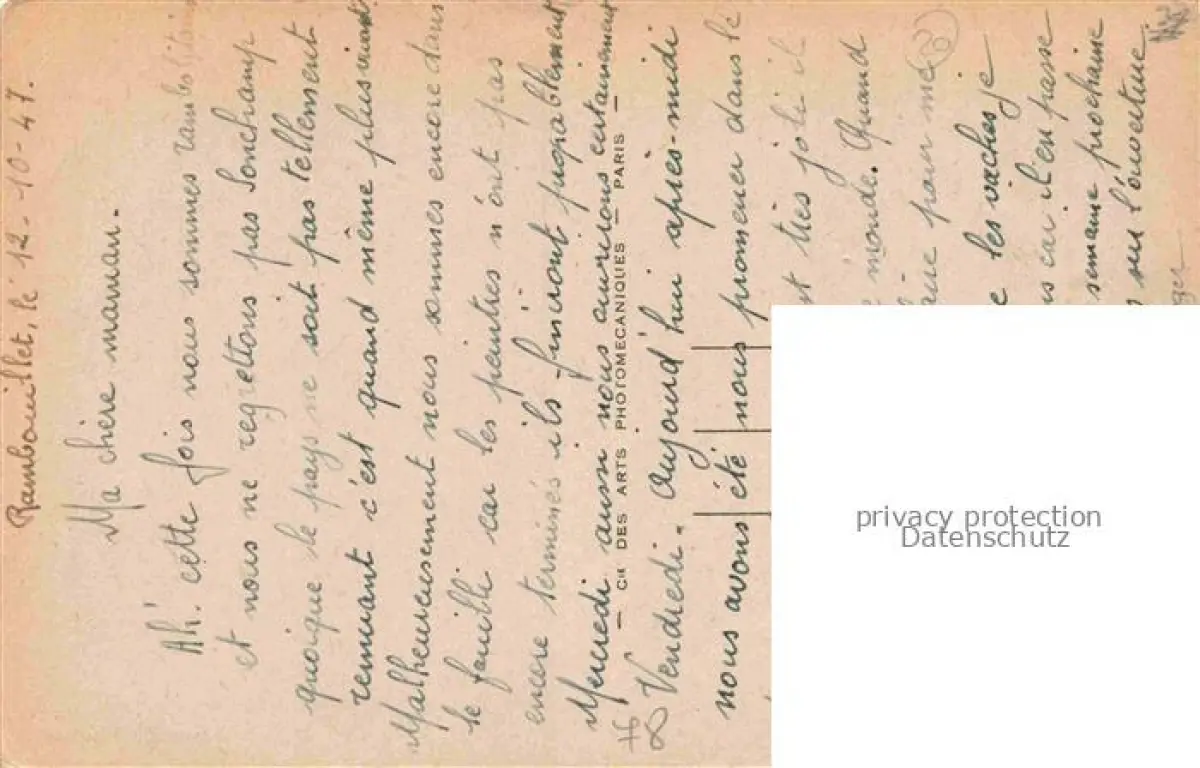 Rambouillet, le 12-10-47.
Ma chère maman.
Ah! cette fois nous sommes
et nous ne regrettons pas Sonchamp
quoique le pays ne soit pas tellement
remuant c'est quand même plus vivant
Malheureusement nous sommes encore dans
le fouilli car les peintres n'ont pas
encore terminés ils finiront probablement
Mercredi aussi nous aurions certainement
— CIE DES ARTS PHOTOMECANIQUES — PARIS —
Vendredi. Aujourd'hui après-midi
nous avons été nous promener dans le
très joli il
monde. Quand
pour me
les vaches je
car il en passe
semaine prochaine
sur l'ouverture
privacy protection
Datenschutz